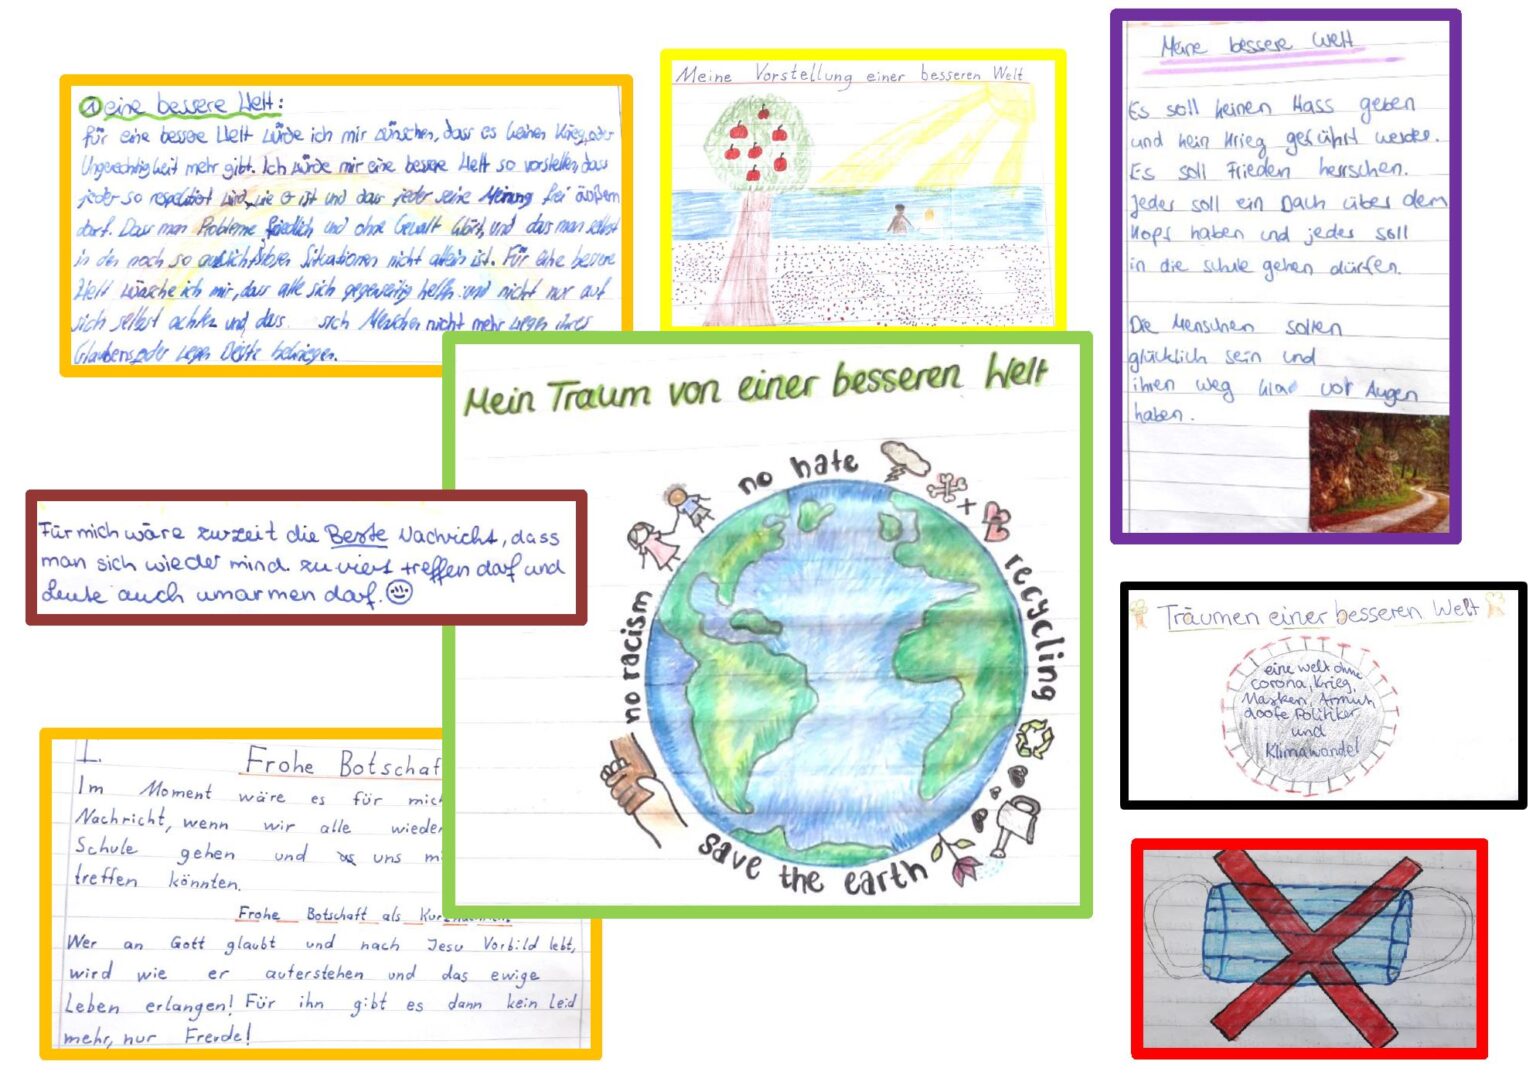 ① eine bessere Welt:
Für eine bessere Welt würde ich mir wünschen, dass es keinen Krieg oder
Ungerechtigkeit mehr gibt. Ich würde mir eine bessere Welt so vorstellen, dass
jeder so respektiert wird, wie er ist und dass jeder seine Meinung frei äußern
darf. Dass man Probleme friedlich und ohne Gewalt und das man selbst
in den noch so Situationen nicht allein ist. Für eine bessere
Welt wünsche ich mir, dass alle sich gegenseitig helfen und nicht nur auf
sich selbst achten und dass sich Menschen nicht mehr wegen ihres
Glaubens oder wegen
Meine Vorstellung einer besseren Welt
Meine bessere Welt
Es soll keinen Hass geben
und kein Krieg geführt werden.
Es soll Frieden herrschen.
Jedes soll ein Dach über dem
Kopf haben und jedes soll
in die Schule gehen dürfen.
Die Menschen sollen
glücklich sein und
ihren Weg klar vor Augen
haben.
Mein Traum von einer besseren Welt
no hate
recycling
save the earth
no racism
Für mich wäre zurzeit die Beste Nachricht, dass
man sich wieder mind. zu viert treffen darf und
Leute auch umarmen darf.
Träumen einer besseren Welt
eine welt ohne
Corona, Krieg,
Masken, Armut
doofe Politiker
und
Klimawandel
1. Frohe Botschaf
Im Moment wäre es für mich
Nachricht, wenn wir alle wieder
Schule gehen und uns mi
treffen könnten.
Frohe Botschaft als
Wer an Gott glaubt und nach Jesu Vorbild lebt,
wird wie er auferstehen und das ewige
Leben erlangen! Für ihn gibt es dann kein Leid
mehr, nur Freude!